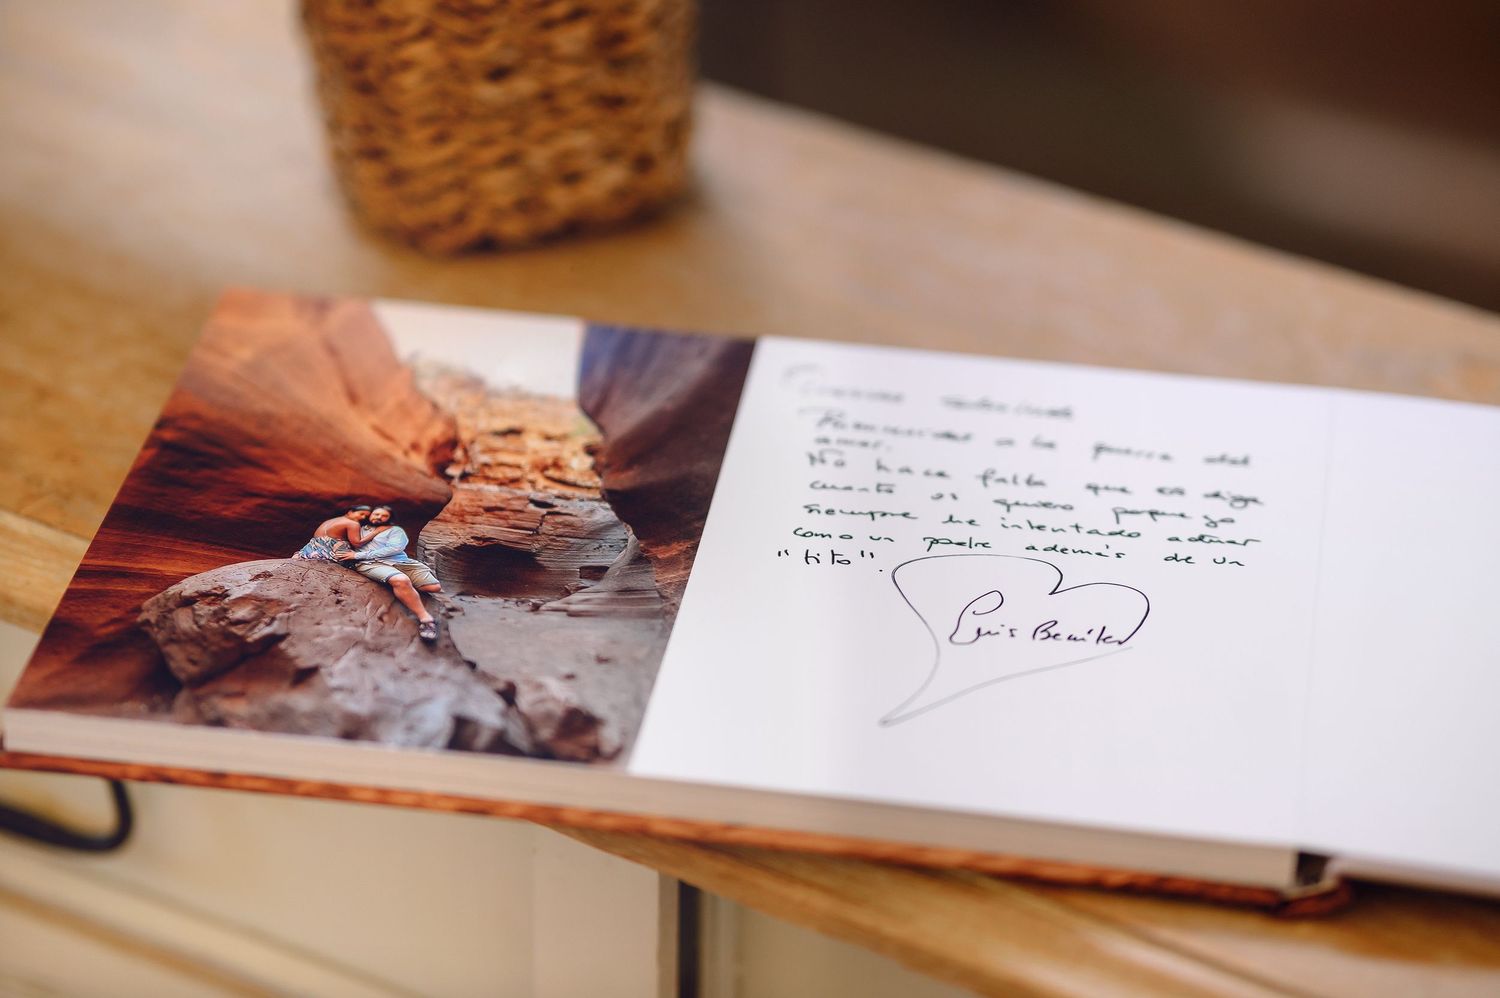 Bienvenidos a la guerra del
amor.
No hace falta que os diga
cuanto os quiero porque yo
siempre he intentado actuar
como un padre además de un
"tito".
Luis Benitez